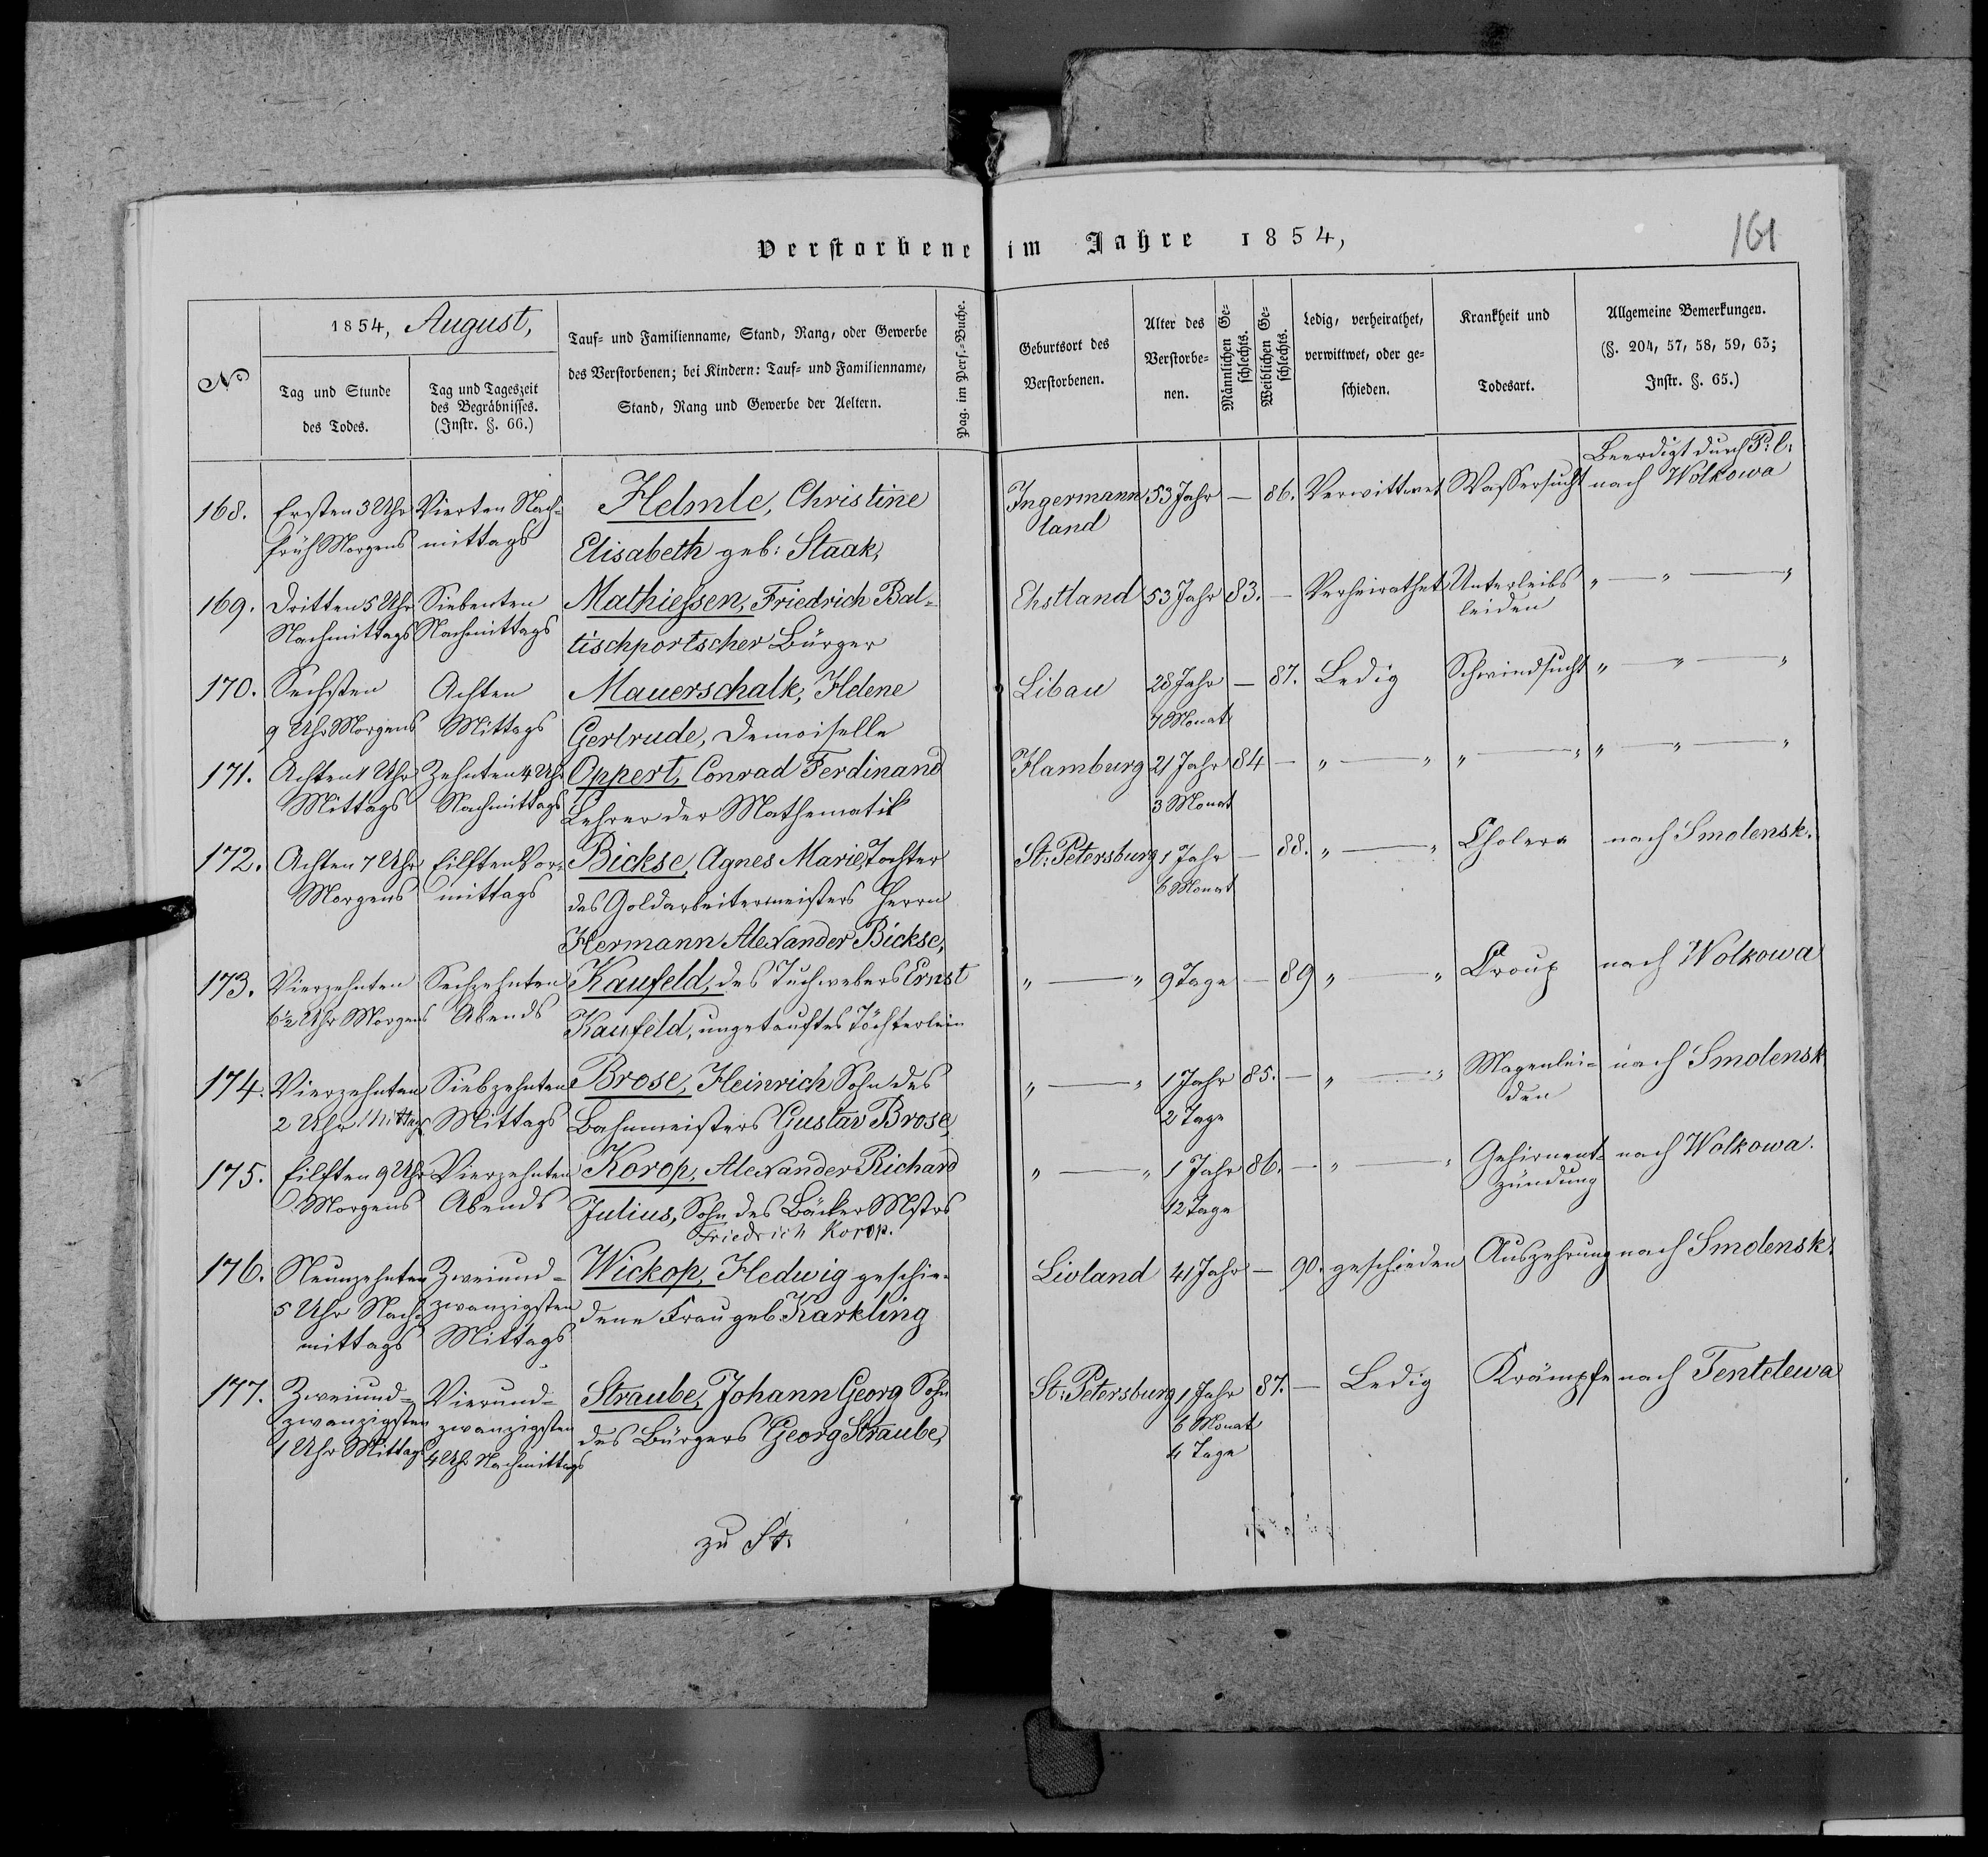 Verstorbene im Jahre 1854,
161
№
1854, August,
Tag und Stunde
des Todes.
Tag und Tageszeit
des Begräbnisses.
(Instr. §. 66.)
Tauf- und Familienname, Stand, Rang, oder Gewerbe
des Verstorbenen; bei Kindern: Tauf- und Familienname,
Stand, Rang und Gewerbe der Aeltern.
Pag. im Pers.-Buche.
Geburtsort des
Verstorbenen.
Alter des
Verstorbe-
nen.
Männlichen Ge-
schlechts.
Weiblichen Ge-
schlechts.
Ledig, verheirathet,
verwittwet, oder ge-
schieden.
Krankheit und
Todesart.
Allgemeine Bemerkungen.
(§. 204, 57, 58, 59, 63;
Instr. §. 65.)
168.
Ersten 3 Uhr
früh Morgens
Vierten Nach-
mittags
Helmle, Christine
Elisabeth geb: Staak,
Ingermann
land
53 Jahr
—
86.
Verwittwet
Wassersucht
Beerdigt durch P: l:
nach Wolkowa
169.
Dritten 5 Uhr
Nachmittags
Siebenten
Nachmittags
Mathiessen, Friedrich Bal-
tischportscher Bürger
Ehstland
53 Jahr
83.
—
Verheirathet
Unterleibs
leiden
„ — „ — „
170.
Sechsten
9 Uhr Morgens
Achten
Mittags
Mauerschalk, Helene
Gertrude, Demoiselle
Libau
28 Jahr
7 Monat
—
87.
Ledig
Schwindsucht
„ — „ — „
171.
Achten 1 Uhr
Mittags
Zehnten 4 Uhr
Nachmittags
Oppert, Conrad Ferdinand
Lehrer der Mathematik
Hamburg
21 Jahr
3 Monat
84
—
„ — „
„ — „
„ — „ — „
172.
Achten 7 Uhr
Morgens
Eilften Vor-
mittags
Bickse, Agnes Marie, Tochter
des Goldarbeitermeisters Herrn
Hermann Alexander Bickse,
St: Petersburg
1 Jahr
6 Monat
—
88.
„ — „
Cholera
nach Smolensk.
173.
Vierzehnten
6½ Uhr Morgens
Sechzehnten
Abends
Kaufeld, des Tuchwebers Ernst
Kaufeld, ungetauftes Töchterlein
„ — „
9 Tage
—
89
„ — „
Croup
nach Wolkowa
174.
Vierzehnten
2 Uhr Mittags
Siebzehnten
Mittags
Brose, Heinrich Sohn des
Bahnmeisters Gustav Brose,
„ — „
1 Jahr
2 Tage
85.
—
„ — „
Magenlei-
den
nach Smolensk
175.
Eilften 9 Uhr
Morgens
Vierzehnten
Abends
Korop, Alexander Richard
Julius, Sohn des Bäcker Mstrs
Friedrich Korop.
„ — „
1 Jahr
12 Tage
86.
—
„ — „
Gehirnent-
zündung
nach Wolkowa.
176.
Neunzehnten
5 Uhr Nach-
mittags
Zweiund-
zwanzigsten
Mittags
Wickop, Hedwig geschie-
dene Frau geb. Karkling
Livland
41 Jahr
—
90.
geschieden
Auszehrung
nach Smolensk.
177.
Zweiund-
zwanzigsten
1 Uhr Mittags
Vierund-
zwanzigsten
4 Uhr Nachmittags
Straube, Johann Georg Sohn
des Bürgers Georg Straube,
St: Petersburg
1 Jahr
6 Monat
4 Tage
87.
—
Ledig
Krämpfe
nach Tentelewa
zu St.